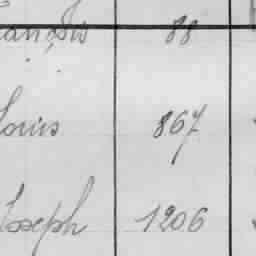 ançois 88
Louis 867
Joseph 1206